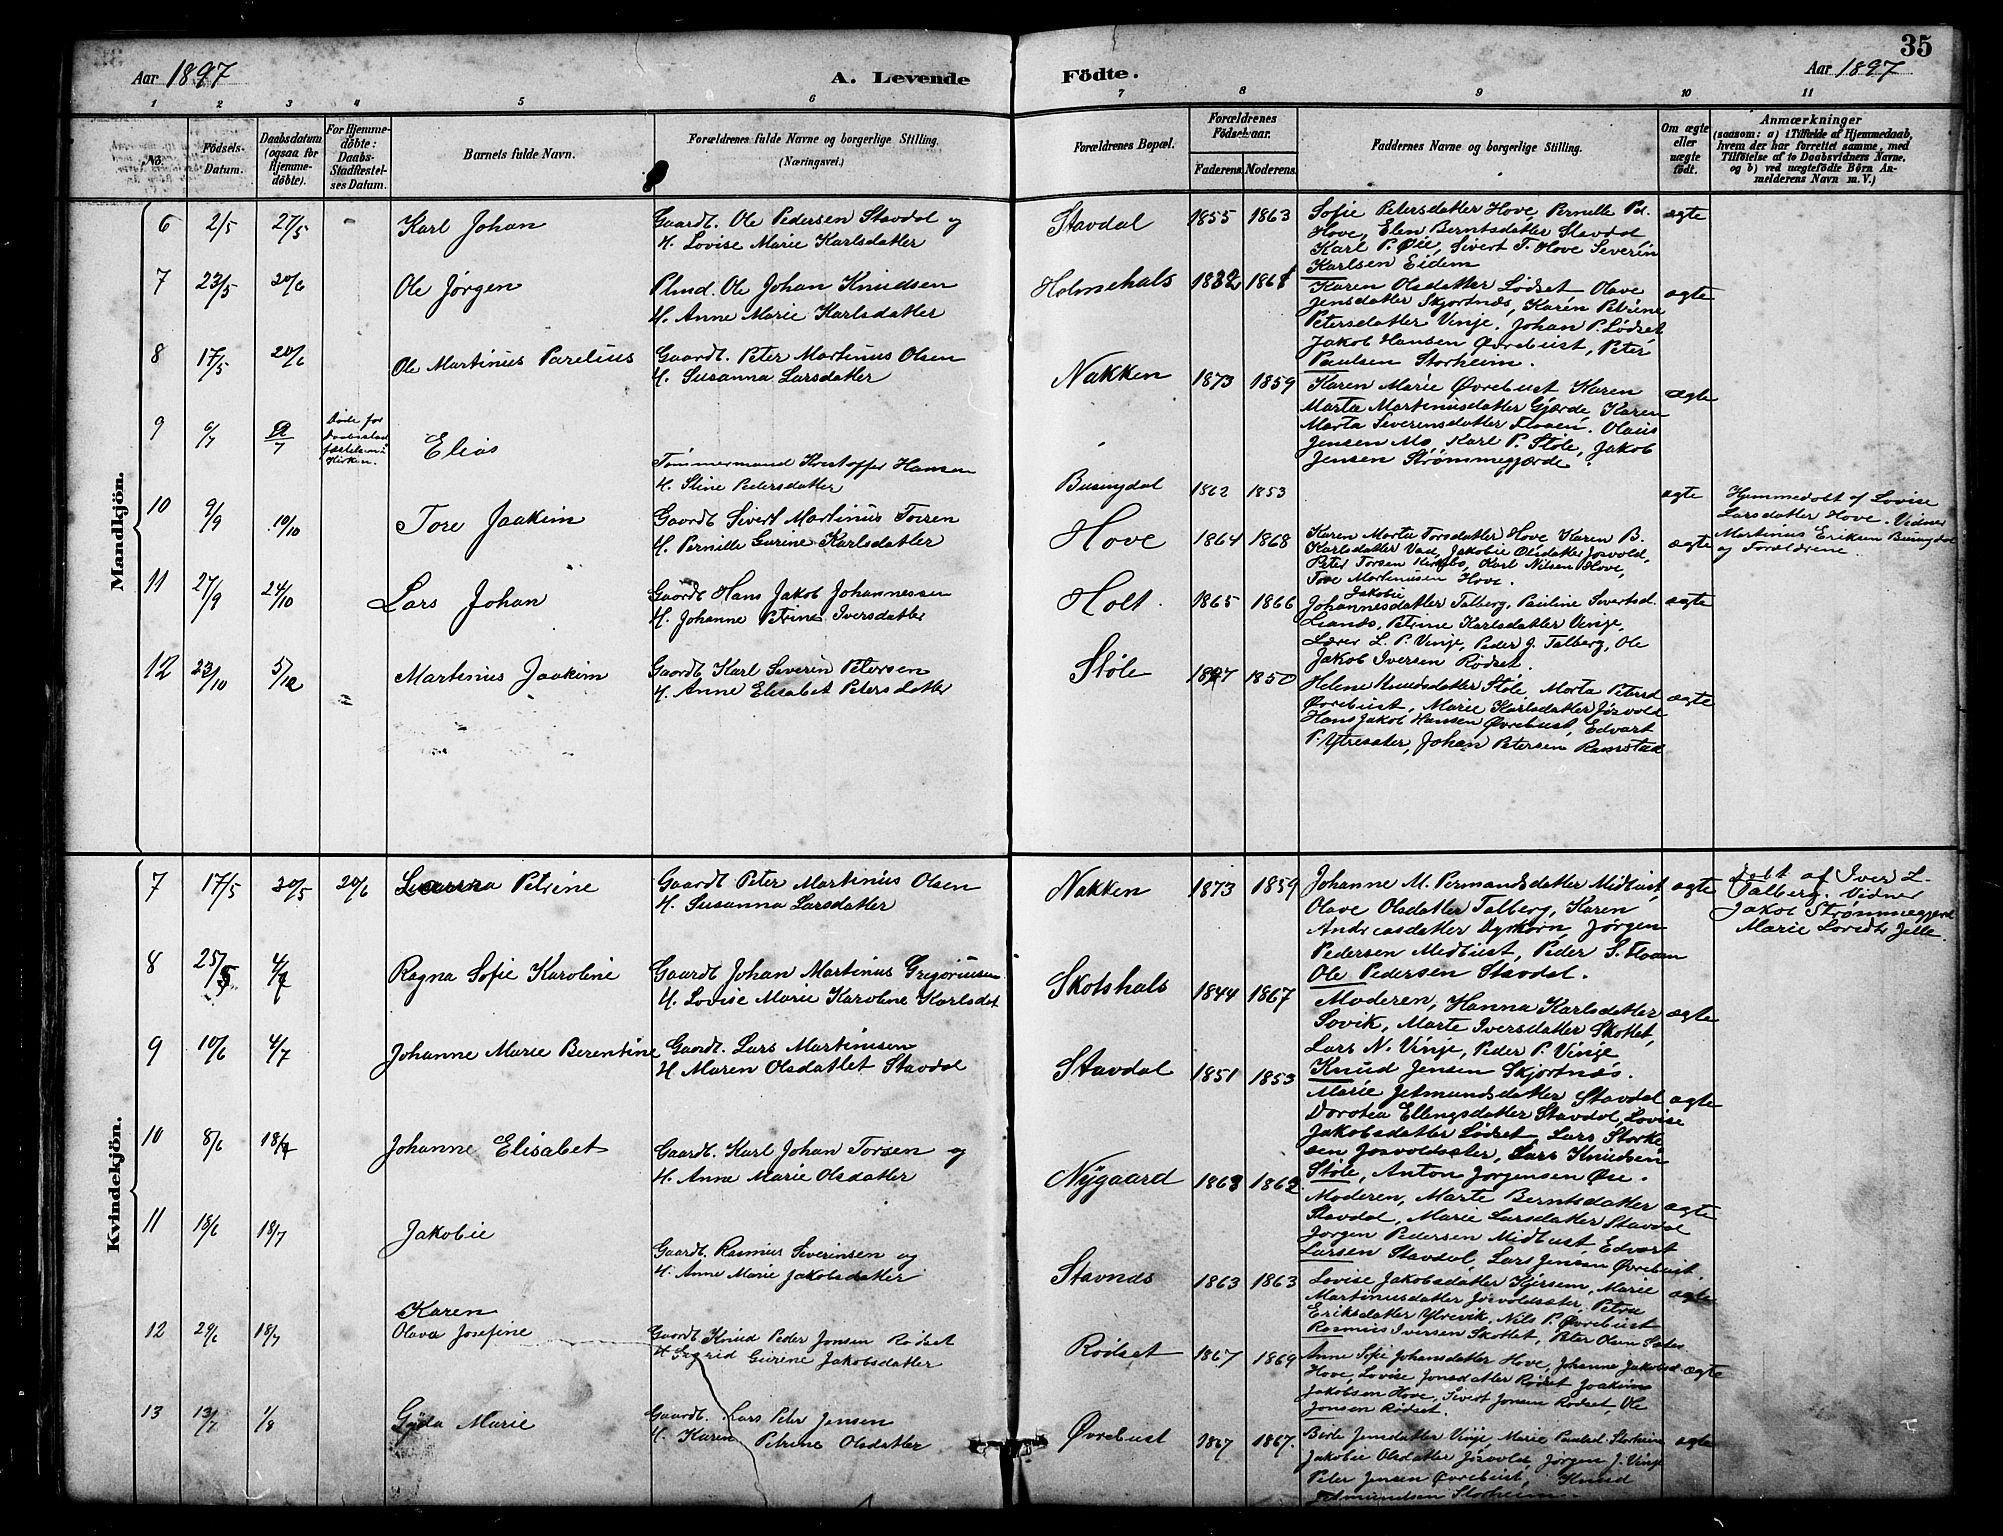 35
Aar 1897
A. Levende Födte.
Aar 1897
1 2 3 4 5 6 7 8 9 10 11
No.
Födsels-Datum.
Daabsdatum (ogsaa for Hjemme-döbte).
For Hjemme-döbte: Daabs-Stadfæstel-ses Datum.
Barnets fulde Navn.
Forældrenes fulde Navne og borgerlige Stilling. (Næringsvei.)
Forældrenes Bopæl.
Forældrenes Födselsaar.
Faderens. Moderens.
Faddernes Navne og borgerlige Stilling.
Om ægte eller uægte födt.
Anmærkninger
(saasom: a) i Tilfælde af Hjemmedaab, hvem der har forrettet samme, med Tilföielse af to Daabsvidners Navne, og b) ved uægtefödte Börn An-melderens Navn m. V.)
Mandkjön.
6 2/5 27/5 Karl Johan
Gaardb. Ole Pedersen Stavdal og
H. Lovise Marie Karlsdatter
Stavdal 1855 1863
Sofie Petersdatter Hove, Pernille Pd.
Hove, Elen Berntsdatter Stavdal
Karl P. Øie, Sivert T. Hove Severin
Karlsen Eidem
ægte
7 23/5 20/6 Ole Jørgen
Plmd. Ole Johan Knudsen
H. Anne Marie Karlsdatter
Holmehals 1832 1868
Karen Olsdatter Lødset Olave
Jensdatter Skjortnæs, Karen Petrine
Petersdatter Vinje. Johan P. Lødset
Jakob Hansen Øvrebust, Peter
Paulsen Storheim.
ægte
8 17/5 20/6 Ole Martinus Parelius
Gaardb. Peter Martinus Olsen
H. Susanna Larsdatter
Nakken 1873 1859
Karen Marie Øvrebust Karen
Marta Martinusdatter Gjærde, Karen
Marta Severensdatter Floaen. Olaus
Jensen Mo, Karl P. Støle, Jakob
Jensen Strømmegjærde.
ægte
9 6/7 /7
Døde før
Kirken.
Elias
Tømmermand Kristoffer Hansen
H. Stine Pedersdatter
Busungdal 1862 1853
ægte
Hjemmedøbt af Lovise
Larsdatter Hove. Vidner
Martinus Eriksen Busungdal
og Forældrene.
10 9/9 10/10 Tore Joakim
Gaardb Sivert Martinus Torsen
H. Pernille Gurine Karlsdatter
Hove 1864 1868
Karen Marta Torsdatter Hove Karen B.
Karlsdatter Vad, Jakobie Olsdatter Josvold,
Peter Torsen Kirkebø, Karl Nilsen Hove,
Tore Martinusen Hove.
ægte
11 27/9 24/10 Lars Johan
Gaardb Hans Jakob Johannessen
H. Johanne Petrine Iversdatter
Holt. 1865 1866
Jakobie
Johannesdatter Talberg, Pauline Sivertsd.
Liands, Petrine Karlsdatter Vinje,
Lærer L. P. Vinje, Peder J. Talberg, Ole
Jakob Iversen Rødset.
ægte
12 23/10 5/12 Martinus Joakim
Gaardb Karl Severin Petersen
H. Anne Elisabet Petersdatter
Støle 1850
Helene Knudsdatter Støle, Marta Petersd
Øvrebust, Marie Karlsdatter Josvold
Hans Jakob Hansen Øvrebust, Edvart
P. Ytresæter, Johan Petersen Ramstad
ægte
Kvindekjön.
7 17/5 30/5 20/6 Petrine
Gaardb Peter Martinus Olsen
H. Susanna Larsdatter
Nakken 1873 1859
Johanne M. Permandsdatter Midbust,
Olave Olsdatter Talberg, Karen
Andreasdatter Dyrkorn, Jørgen
Pedersen Midbust, Peder S. Floaen
Ole Pedersen Stavdal.
ægte
døbt af Iver L.
Talberg. Vidner
Jakob Strømmegjerde
Marie Jelle.
8 25/5 4/7 Ragna Sofie Karoline
Gaardb Johan Martinus Gregoriusen
H. Lovise Marie Karoline Karlsdat
Skotshals 1844 1867
Moderen, Hanna Karlsdatter
Sovik, Marte Iversdatter Skottet,
Lars N. Vinje, Peder P. Vinje
Knud Jensen Skjortnæs.
ægte
9 10/6 4/7 Johanne Marie Berentine
Gaardb. Lars Martinusen
H Maren Olsdatter Stavdal
Stavdal 1851 1853
Marie Jetmundsdatter Stavdal
Dorotea Ellengsdatter Stavdal, Lovise
Jakobsdatter Lødset Lars Storke
sen Josvoldsæter, Lars Knudsen
Støle, Anton Jørgensen Øie.
ægte
10 8/6 18/7 Johanne Elisabet
Gaardb. Karl Johan Torsen og
H. Anne Marie Olsdatter
Nygaard 1863 1862
Moderen, Marte Berntsdatter
Stavdal, Marie Larsdatter Stavdal
Jørgen Pedersen Midbust, Edvart
Larsen Stavdal, Lars Jensen Øvrebust.
ægte
11 18/6 18/7 Jakobie
Gaardb. Rasmus Severinsen og
H. Anne Marie Jakobsdatter
Stavnes 1863 1863
Lovise Jakobsdatter Kjersem, Marie
Martinusdatter Josvoldsæter, Petra
Eriksdatter Ytrevik, Nils P. Øvrebust
Rasmus Iversen Skottet, Peter Olsen Sæter
ægte
12 29/6 18/7 Karen
Olava Josefine
Gaardb Knud Peder Jonsen Rødset
H Sigrid Gurine Jakobsdatter
Rødset 1867 1869
Anne Sofie Johansdatter Hove, Johanne Jakobsd.
Hove, Lovise Jonsdatter Rødset Joakim
Jakobsen Hove, Sivert Jonsen Rødset, Ole
Jonsen Rødset.
ægte
13 13/7 1/8 Gyda Marie
Gaardb. Lars Peter Jensen
H. Karen Petrine Olsdatter
Øvrebust 1867 1867.
Berte Jensdatter Vinje, Marie Paulsd. Storheim
Jakobie Olsdatter Josvold, Jørgen J. Vinje
Peter Jensen Øvrebust, Knud
Jetmundsen Storheim.
ægte